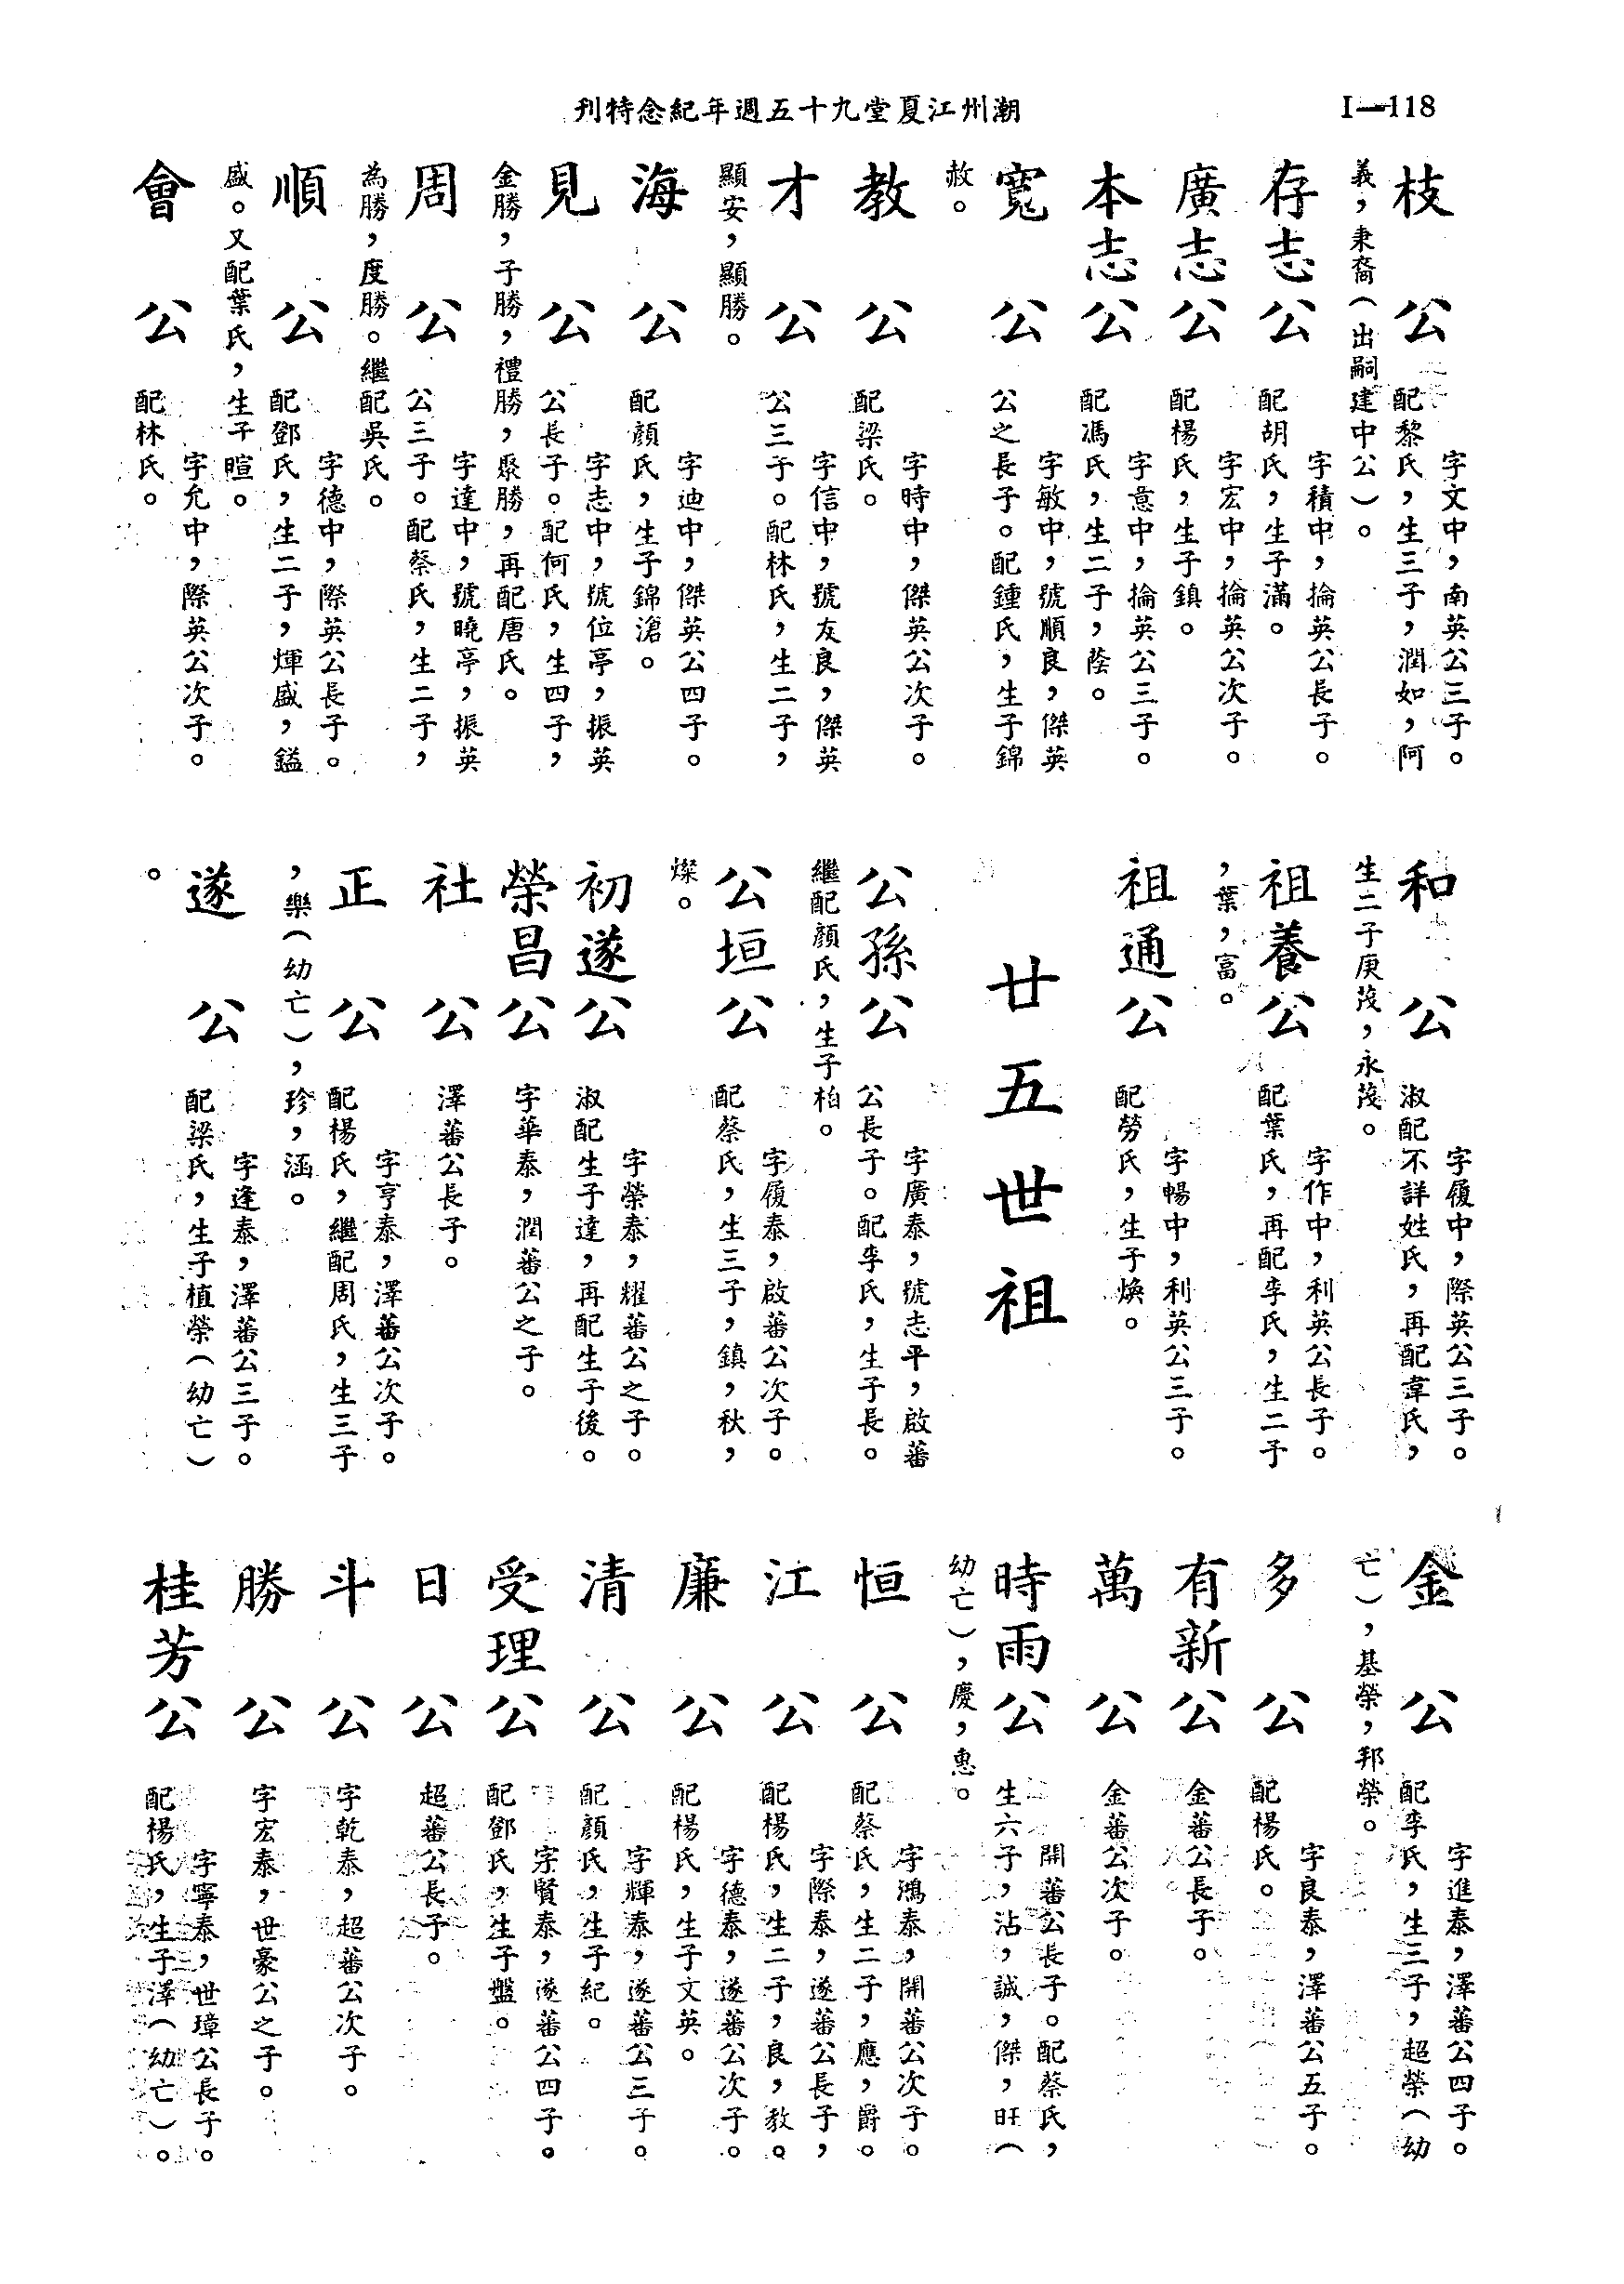 潮州江夏堂九十五週年紀念特刊
I—118
枝公
字文中,南英公三子。
配黎氏,生三子,潤如,阿
義,秉裔(出嗣建中公)。
存志公
字積中,掄英公長子。
配胡氏,生子滿。
廣志公
字宏中,掄英公次子。
配楊氏,生子鎮。
本志公
字意中,掄英公三子。
配馮氏,生二子,蔭。
寬公
字敏中,號順良,傑英
公之長子。配鍾氏,生子錦
赦。
教公
字時中,傑英公次子。
配梁氏。
才公
字信中,號友良,傑英
公三子。配林氏,生二子,
顯安,顯勝。
海公
字迪中,傑英公四子。
配顏氏,生子錦滄。
見公
字志中,號位亭,振英
公長子。配何氏,生四子,
金勝,子勝,禮勝,聚勝,再配唐氏。
周公
字達中,號曉亭,振英
公三子。配蔡氏,生二子,
為勝,度勝。繼配吳氏。
順公
字德中,際英公長子。
配鄧氏,生二子,煇盛,鎰
盛。又配葉氏,生子暄。
會公
字允中,際英公次子。
配林氏。
和公
字履中,際英公三子。
淑配不詳姓氏,再配韋氏,
生二子庚茂,永茂。
祖養公
字作中,利英公長子。
配葉氏,再配李氏,生二子
,葉,富。
祖通公
字暢中,利英公三子。
配勞氏,生子煥。
廿五世祖
公孫公
字廣泰,號志平,啟蕃
公長子。配李氏,生子長。
繼配顏氏,生子柏。
公垣公
字履泰,啟蕃公次子。
配蔡氏,生三子,鎮,秋,
燦。
初遂公
字榮泰,耀蕃公之子。
淑配生子達,再配生子後。
榮昌公
字華泰,潤蕃公之子。
社公
澤蕃公長子。
正公
字亨泰,澤蕃公次子。
配楊氏,繼配周氏,生三子
,樂(幼亡),珍,涵。
遂公
字逢泰,澤蕃公三子。
配梁氏,生子植榮(幼亡)
。
金公
字進泰,澤蕃公四子。
配李氏,生三子,超榮(幼
亡),基榮,邦榮。
多公
字良泰,澤蕃公五子。
配楊氏。
有新公
金蕃公長子。
萬公
金蕃公次子。
時雨公
開蕃公長子。配蔡氏,
生六子,沾,誠,傑,旺(
幼亡),慶,惠。
恒公
字鴻泰,開蕃公次子。
配蔡氏,生二子,應,爵。
江公
字際泰,遂蕃公長子,
配楊氏,生二子,良,教。
廉公
字德泰,遂蕃公次子。
配楊氏,生子文英。
清公
字輝泰,遂蕃公三子。
配顏氏,生子紀。
受理公
字賢泰,遂蕃公四子。
配鄧氏,生子盤。
日公
超蕃公長子。
斗公
字乾泰,超蕃公次子。
勝公
字宏泰,世豪公之子。
桂芳公
字寧泰,世璋公長子。
配楊氏,生子澤(幼亡)。